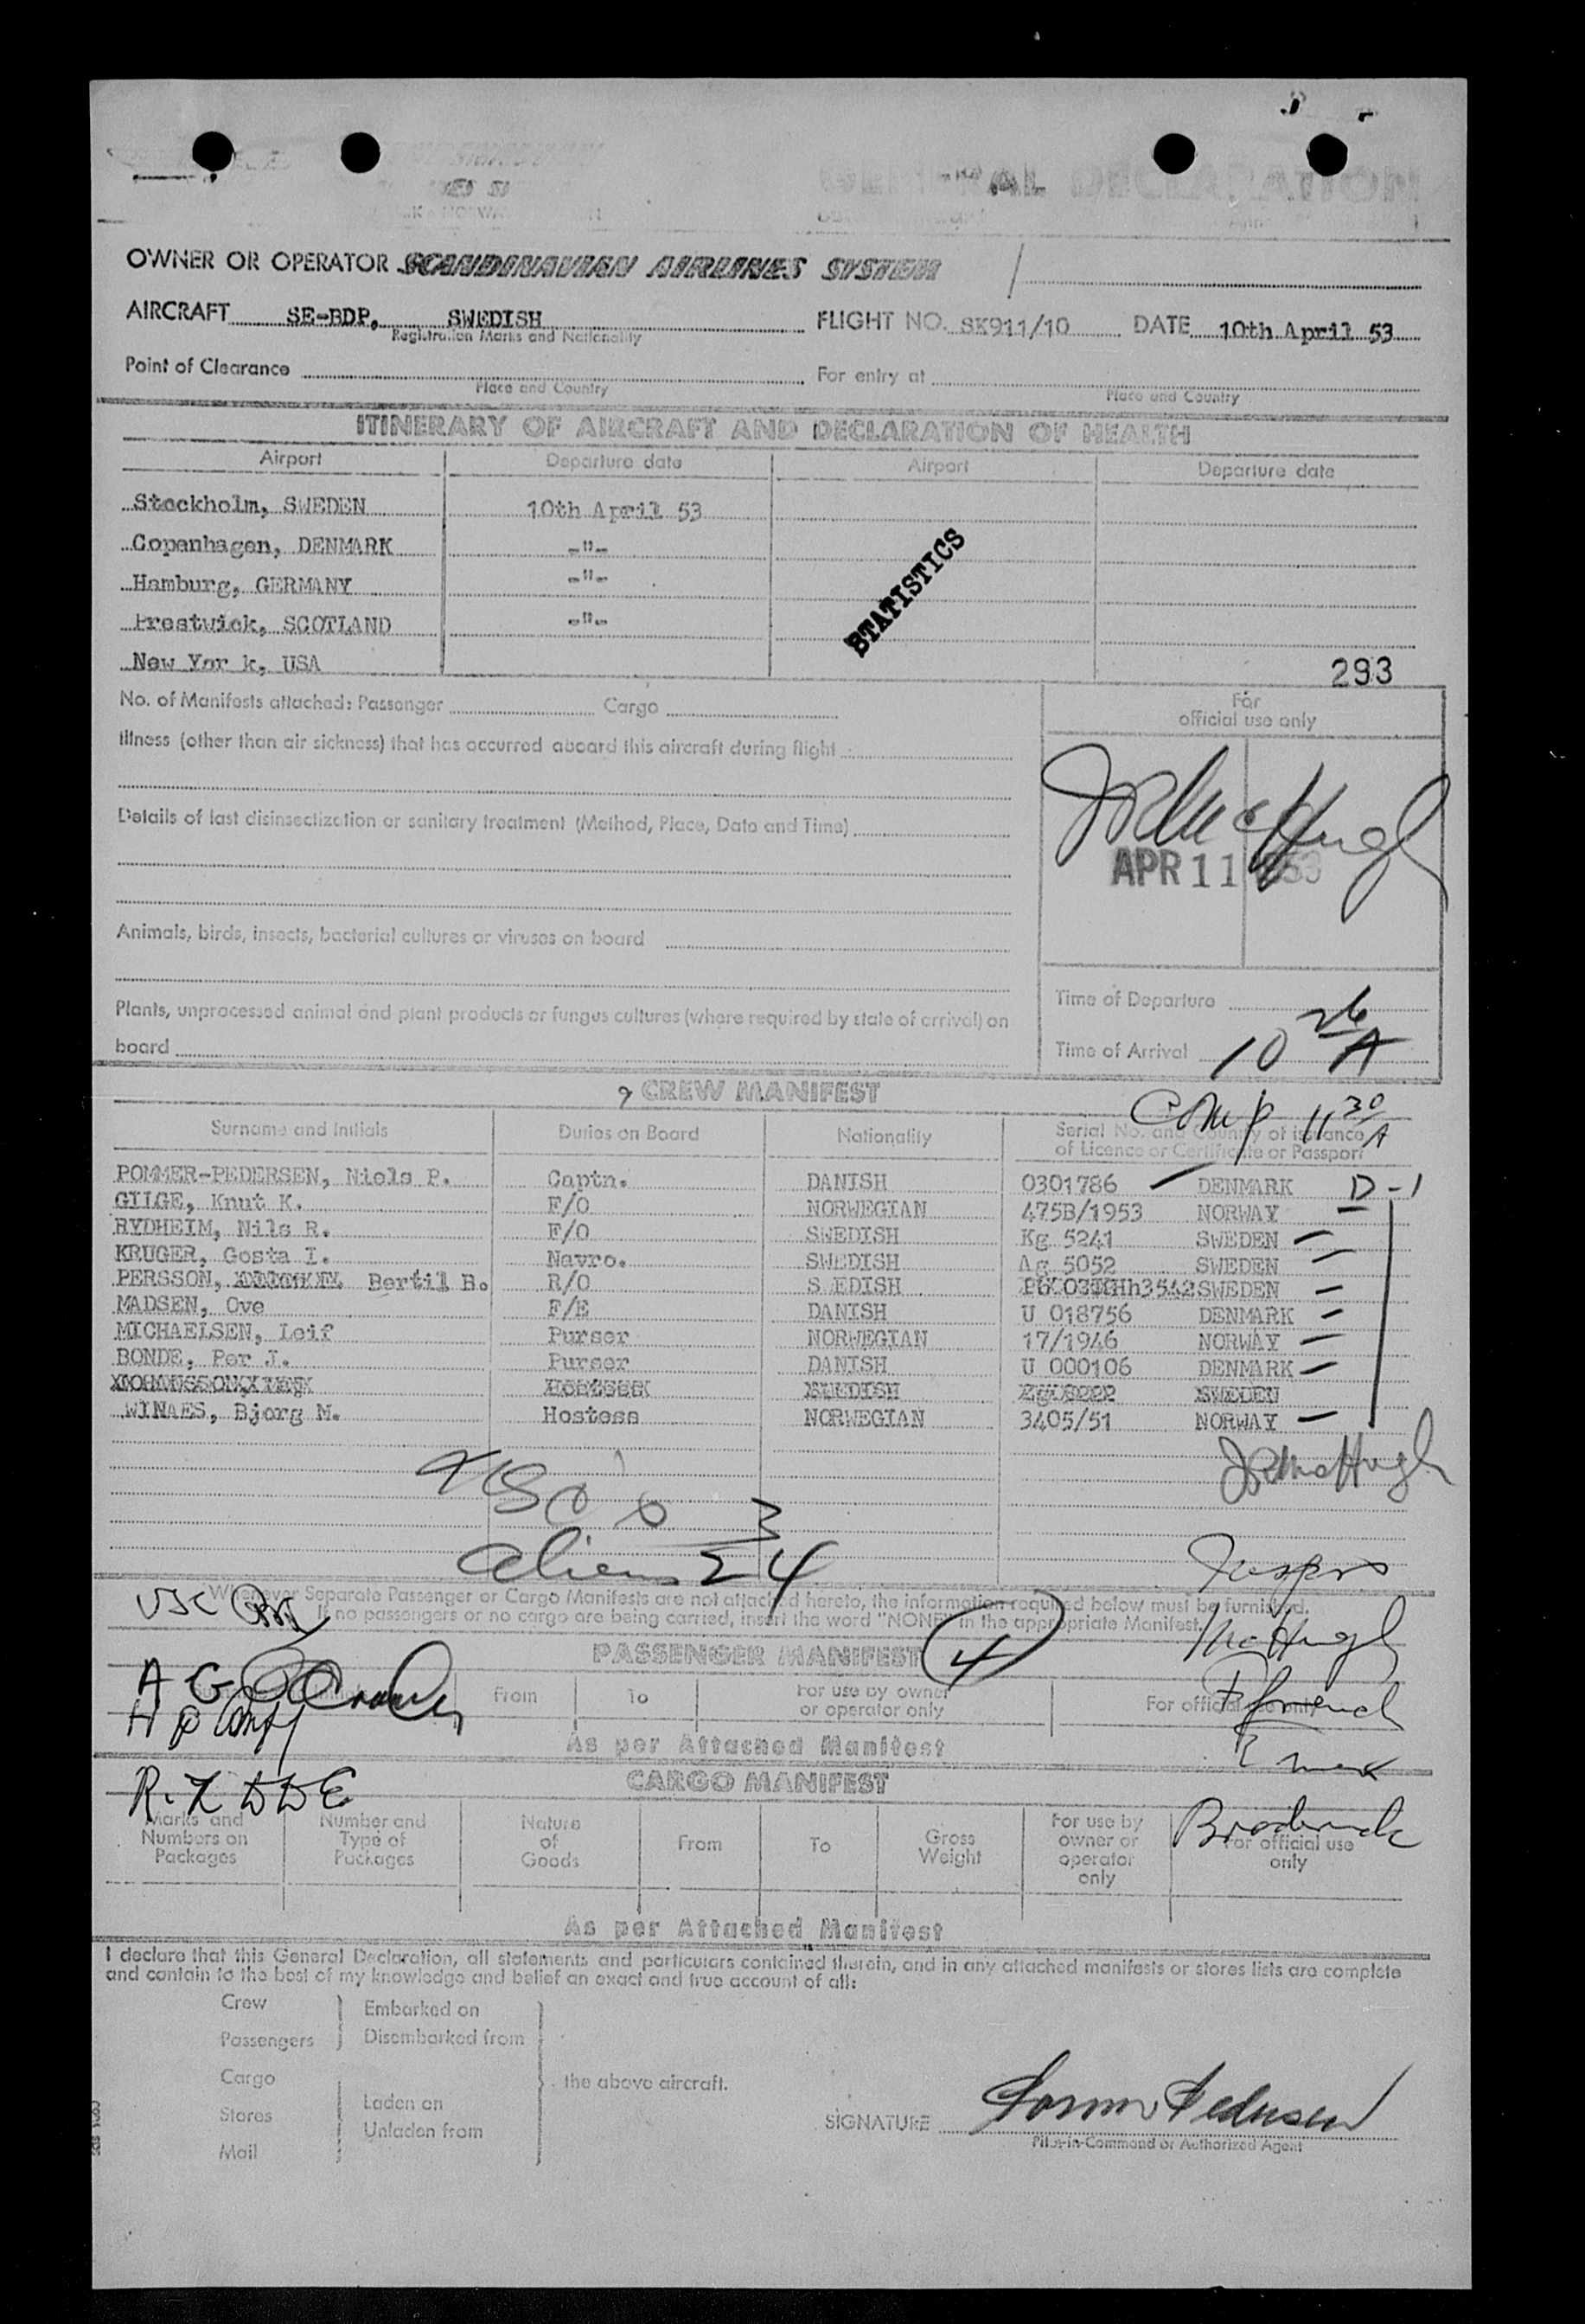 GENERAL DECLARATION
OWNER OR OPERATOR SCANDINAVIAN AIRLINES SYSTEM
AIRCRAFT SE-BDP, SWEDISH FLIGHT NO. SK911/10 DATE 10th April 53
Registration Marks and Nationality
Point of Clearance For entry at
Place and Country Place and Country
ITINERARY OF AIRCRAFT AND DECLARATION OF HEALTH
Airport Departure date Airport Departure date
Stockholm, SWEDEN 10th April 53
Copenhagen, DENMARK -"-
Hamburg, GERMANY -"-
Prestwick, SCOTLAND -"-
STATISTICS
New Yor k, USA
293
No. of Manifests attached: Passenger Cargo
For
official use only
Illness (other than air sickness) that has occurred aboard this aircraft during flight
Details of last disinsectization or sanitary treatment (Method, Place, Date and Time)
APR 11 1953
Animals, birds, insects, bacterial cultures or viruses on board
Time of Departure
Plants, unprocessed animal and plant products or fungus cultures (where required by state of arrival) on
board
Time of Arrival 10 26 A
CREW MANIFEST
Comp 11 30 A
Surname and Initials Duties on Board Nationality Serial No. and Country of issuance
of Licence or Certificate or Passport
POMMER-PEDERSEN, Niels P. Captn. DANISH 0301786 DENMARK D-1
GILGE, Knut K. F/O NORWEGIAN 475B/1953 NORWAY
RYDHEIM, Nils R. F/O SWEDISH Kg 5241 SWEDEN
KRUGER, Gosta I. Navro. SWEDISH Ag 5052 SWEDEN
PERSSON, Bertil B. R/O S EDISH Hh3542 SWEDEN
MADSEN, Ove F/E DANISH U 018756 DENMARK
MICHAELSEN, Leif Purser NORWEGIAN 17/1946 NORWAY
BONDE, Per J. Purser DANISH U 000106 DENMARK
WINAES, Bjorg M. Hostess NORWEGIAN 3405/51 NORWAY
J R McHugh
USC 3
Aliens 24
Whenever Separate Passenger or Cargo Manifests are not attached hereto, the information required below must be furnished.
If no passengers or no cargo are being carried, insert the word "NONE" in the appropriate Manifest.
McHugh
PASSENGER MANIFEST 4
From To For use by owner
or operator only
For official use only
As per Attached Manifest
CARGO MANIFEST
Marks and
Numbers on
Packages
Number and
Type of
Packages
Nature
of
Goods
From To Gross
Weight
For use by
owner or
operator
only
Broderick
For official use
only
As per Attached Manifest
I declare that this General Declaration, all statements and particulars contained therein, and in any attached manifests or stores lists are complete
and contain to the best of my knowledge and belief an exact and true account of all:
Crew Embarked on
Passengers Disembarked from
Cargo the above aircraft.
Laden on
Stores
Unladen from
Mail
SIGNATURE
Pilot-in-Command or Authorized Agent